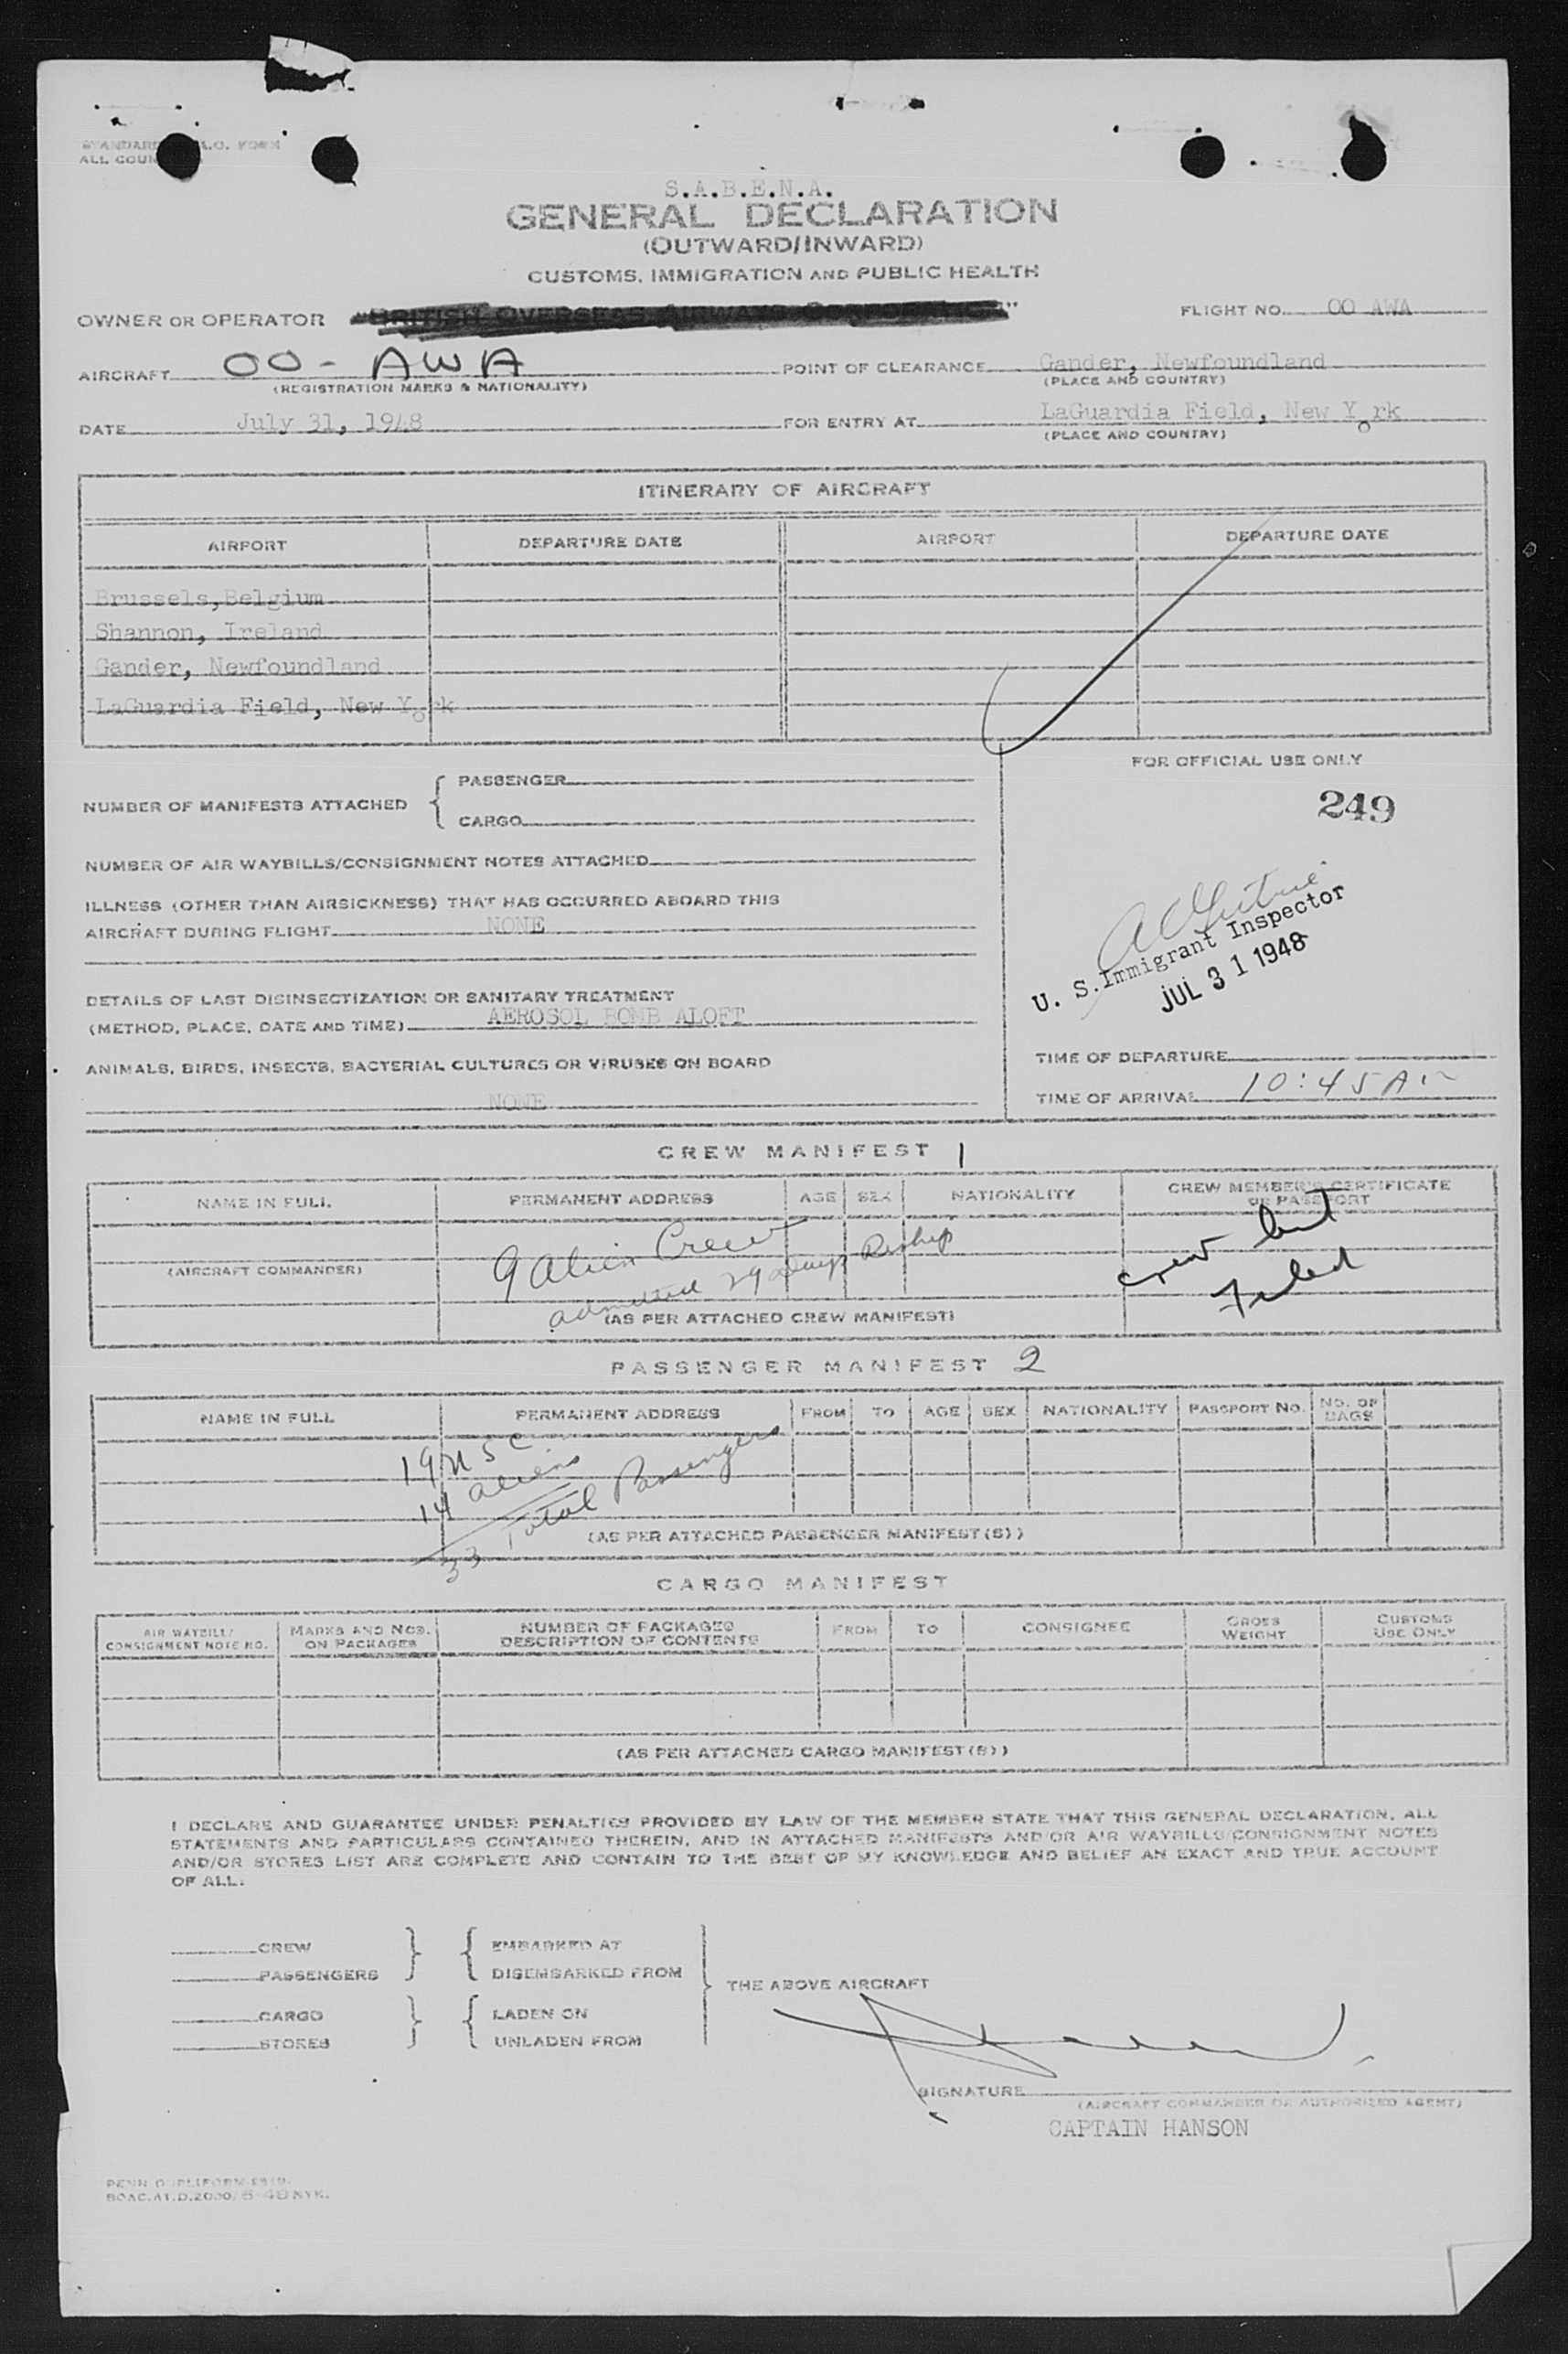 ALL COUN
S.A.B.E.N.A.
GENERAL DECLARATION
(OUTWARD/INWARD)
CUSTOMS, IMMIGRATION AND PUBLIC HEALTH
OWNER OR OPERATOR "BRITISH OVERSEAS AIRWAYS CORPORATION"
FLIGHT NO. OO AWA
AIRCRAFT OO - AWA
POINT OF CLEARANCE Gander, Newfoundland
(REGISTRATION MARKS & NATIONALITY)
(PLACE AND COUNTRY)
DATE July 31, 1948
FOR ENTRY AT LaGuardia Field, New York
(PLACE AND COUNTRY)
ITINERARY OF AIRCRAFT
AIRPORT DEPARTURE DATE AIRPORT DEPARTURE DATE
Brussels,Belgium
Shannon, Ireland
Gander, Newfoundland
LaGuardia Field, New York
NUMBER OF MANIFESTS ATTACHED
PASSENGER
CARGO
NUMBER OF AIR WAYBILLS/CONSIGNMENT NOTES ATTACHED
ILLNESS (OTHER THAN AIRSICKNESS) THAT HAS OCCURRED ABOARD THIS
AIRCRAFT DURING FLIGHT NONE
DETAILS OF LAST DISINSECTIZATION OR SANITARY TREATMENT
(METHOD, PLACE, DATE AND TIME) AEROSOL BOMB ALOFT
ANIMALS, BIRDS, INSECTS, BACTERIAL CULTURES OR VIRUSES ON BOARD
NONE
FOR OFFICIAL USE ONLY
249
U. S. Immigrant Inspector
JUL 31 1948
TIME OF DEPARTURE
TIME OF ARRIVAL 10:45 A
CREW MANIFEST 1
NAME IN FULL PERMANENT ADDRESS AGE SEX NATIONALITY CREW MEMBER'S CERTIFICATE
OR PASSPORT
9 Alien Crew
admitted 29 Days Reship
crew list
Filed
(AIRCRAFT COMMANDER)
(AS PER ATTACHED CREW MANIFEST)
PASSENGER MANIFEST 2
NAME IN FULL PERMANENT ADDRESS FROM TO AGE SEX NATIONALITY PASSPORT NO. NO. OF
BAGS
19 USC
14 aliens
33 Total Passengers
(AS PER ATTACHED PASSENGER MANIFEST(S))
CARGO MANIFEST
AIR WAYBILL/
CONSIGNMENT NOTE NO.
MARKS AND NOS.
ON PACKAGES
NUMBER OF PACKAGES
DESCRIPTION OF CONTENTS
FROM TO CONSIGNEE
GROSS
WEIGHT
CUSTOMS
USE ONLY
(AS PER ATTACHED CARGO MANIFEST(S))
I DECLARE AND GUARANTEE UNDER PENALTIES PROVIDED BY LAW OF THE MEMBER STATE THAT THIS GENERAL DECLARATION, ALL
STATEMENTS AND PARTICULARS CONTAINED THEREIN, AND IN ATTACHED MANIFESTS AND/OR AIR WAYBILLS/CONSIGNMENT NOTES
AND/OR STORES LIST ARE COMPLETE AND CONTAIN TO THE BEST OF MY KNOWLEDGE AND BELIEF AN EXACT AND TRUE ACCOUNT
OF ALL:
CREW
PASSENGERS
CARGO
STORES
EMBARKED AT
DISEMBARKED FROM
LADEN ON
UNLADEN FROM
THE ABOVE AIRCRAFT
SIGNATURE
(AIRCRAFT COMMANDER OR AUTHORIZED AGENT)
CAPTAIN HANSON